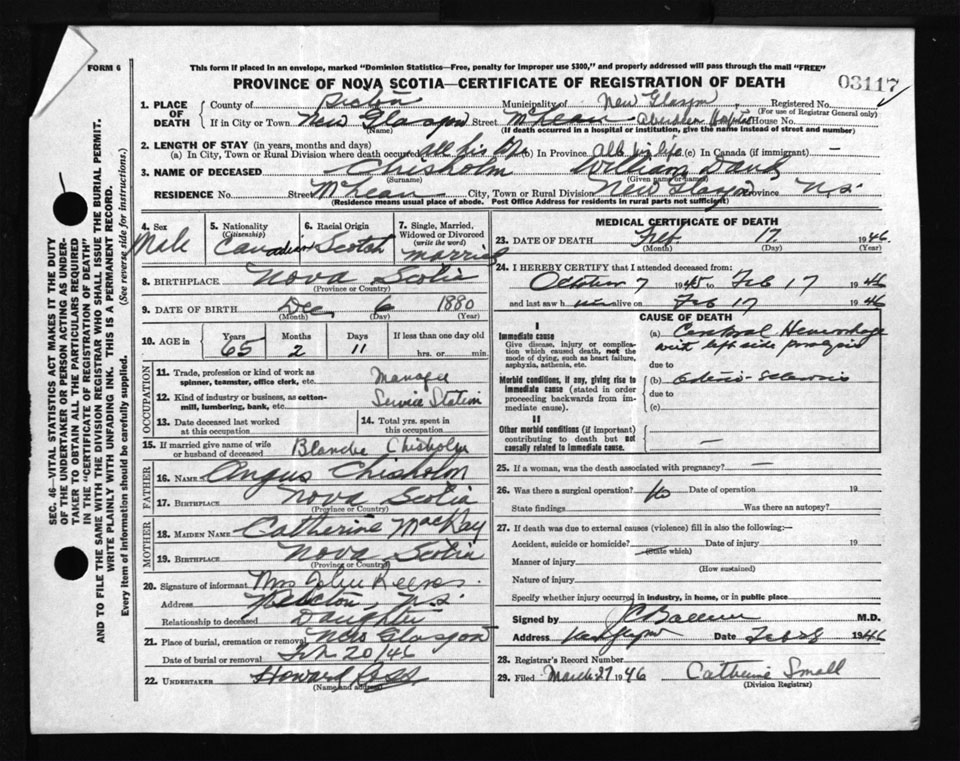 FORM 6
This form if placed in an envelope, marked "Dominion Statistics—Free, penalty for improper use $300," and properly addressed will pass through the mail "FREE"
PROVINCE OF NOVA SCOTIA—CERTIFICATE OF REGISTRATION OF DEATH
03117
1. PLACE OF DEATH
County of Pictou Municipality of New Glasgow Registered No.
(For use of Registrar General only)
If in City or Town New Glasgow Street McLean Aberdeen Hospital House No.
(Name) (If death occurred in a hospital or institution, give the name instead of street and number)
2. LENGTH OF STAY (in years, months and days)
(a) In City, Town or Rural Division where death occurred all his life (b) In Province all his life (c) In Canada (if immigrant) —
3. NAME OF DECEASED Chisholm William David
(Surname) (Given name or names)
RESIDENCE No. Street McLean City, Town or Rural Division New Glasgow Province N.S.
(Residence means usual place of abode. Post Office Address for residents in rural parts not sufficient)
4. Sex Male
5. Nationality (Citizenship) Canadian
6. Racial Origin Scotch
7. Single, Married, Widowed or Divorced (write the word) Married
8. BIRTHPLACE Nova Scotia
(Province or Country)
9. DATE OF BIRTH Dec 6 1880
(Month) (Day) (Year)
10. AGE in Years 65 Months 2 Days 11 If less than one day old hrs. or min.
OCCUPATION
11. Trade, profession or kind of work as spinner, teamster, office clerk, etc. Manager
12. Kind of industry or business, as cotton-mill, lumbering, bank, etc. Service Station
13. Date deceased last worked at this occupation
14. Total yrs. spent in this occupation
15. If married give name of wife or husband of deceased Blanche Chisholm
FATHER
16. NAME Angus Chisholm
17. BIRTHPLACE Nova Scotia
(Province or Country)
MOTHER
18. MAIDEN NAME Catherine MacKay
19. BIRTHPLACE Nova Scotia
(Province or Country)
20. Signature of informant Mrs John
Address N.S.
Relationship to deceased Daughter
21. Place of burial, cremation or removal New Glasgow
Date of burial or removal Feb 20/46
22. UNDERTAKER Howard Ross
(Name and address)
MEDICAL CERTIFICATE OF DEATH
23. DATE OF DEATH Feb. 17. 1946.
(Month) (Day) (Year)
24. I HEREBY CERTIFY that I attended deceased from:
October 7 1945 to Feb 17 1946
and last saw h im alive on Feb 17 1946
CAUSE OF DEATH
I
Immediate cause
Give disease, injury or complication which caused death, not the mode of dying, such as heart failure, asphyxia, asthenia, etc.
(a) Cerebral Hemorrhage
with left side paralysis
due to
Morbid conditions, if any, giving rise to immediate cause (stated in order proceeding backwards from immediate cause).
(b) Arterio-Sclerosis
due to
(c)
II
Other morbid conditions (if important) contributing to death but not causally related to immediate cause.
—
25. If a woman, was the death associated with pregnancy? —
26. Was there a surgical operation? No Date of operation 19
State findings Was there an autopsy?
27. If death was due to external causes (violence) fill in also the following:—
Accident, suicide or homicide? Date of injury 19
(State which)
Manner of injury
(How sustained)
Nature of injury
Specify whether injury occurred in industry, in home, or in public place
Signed by M.D.
Address New Glasgow Date 1946
28. Registrar's Record Number
29. Filed March 27 1946 Catherine Small
(Division Registrar)
SEC. 46—VITAL STATISTICS ACT MAKES IT THE DUTY OF THE UNDERTAKER OR PERSON ACTING AS UNDERTAKER TO OBTAIN ALL THE PARTICULARS REQUIRED IN THE "CERTIFICATE OF REGISTRATION OF DEATH" AND TO FILE THE SAME WITH THE DIVISION REGISTRAR WHO SHALL ISSUE THE BURIAL PERMIT.
WRITE PLAINLY WITH UNFADING INK. THIS IS A PERMANENT RECORD.
Every item of information should be carefully supplied. (See reverse side for instructions.)